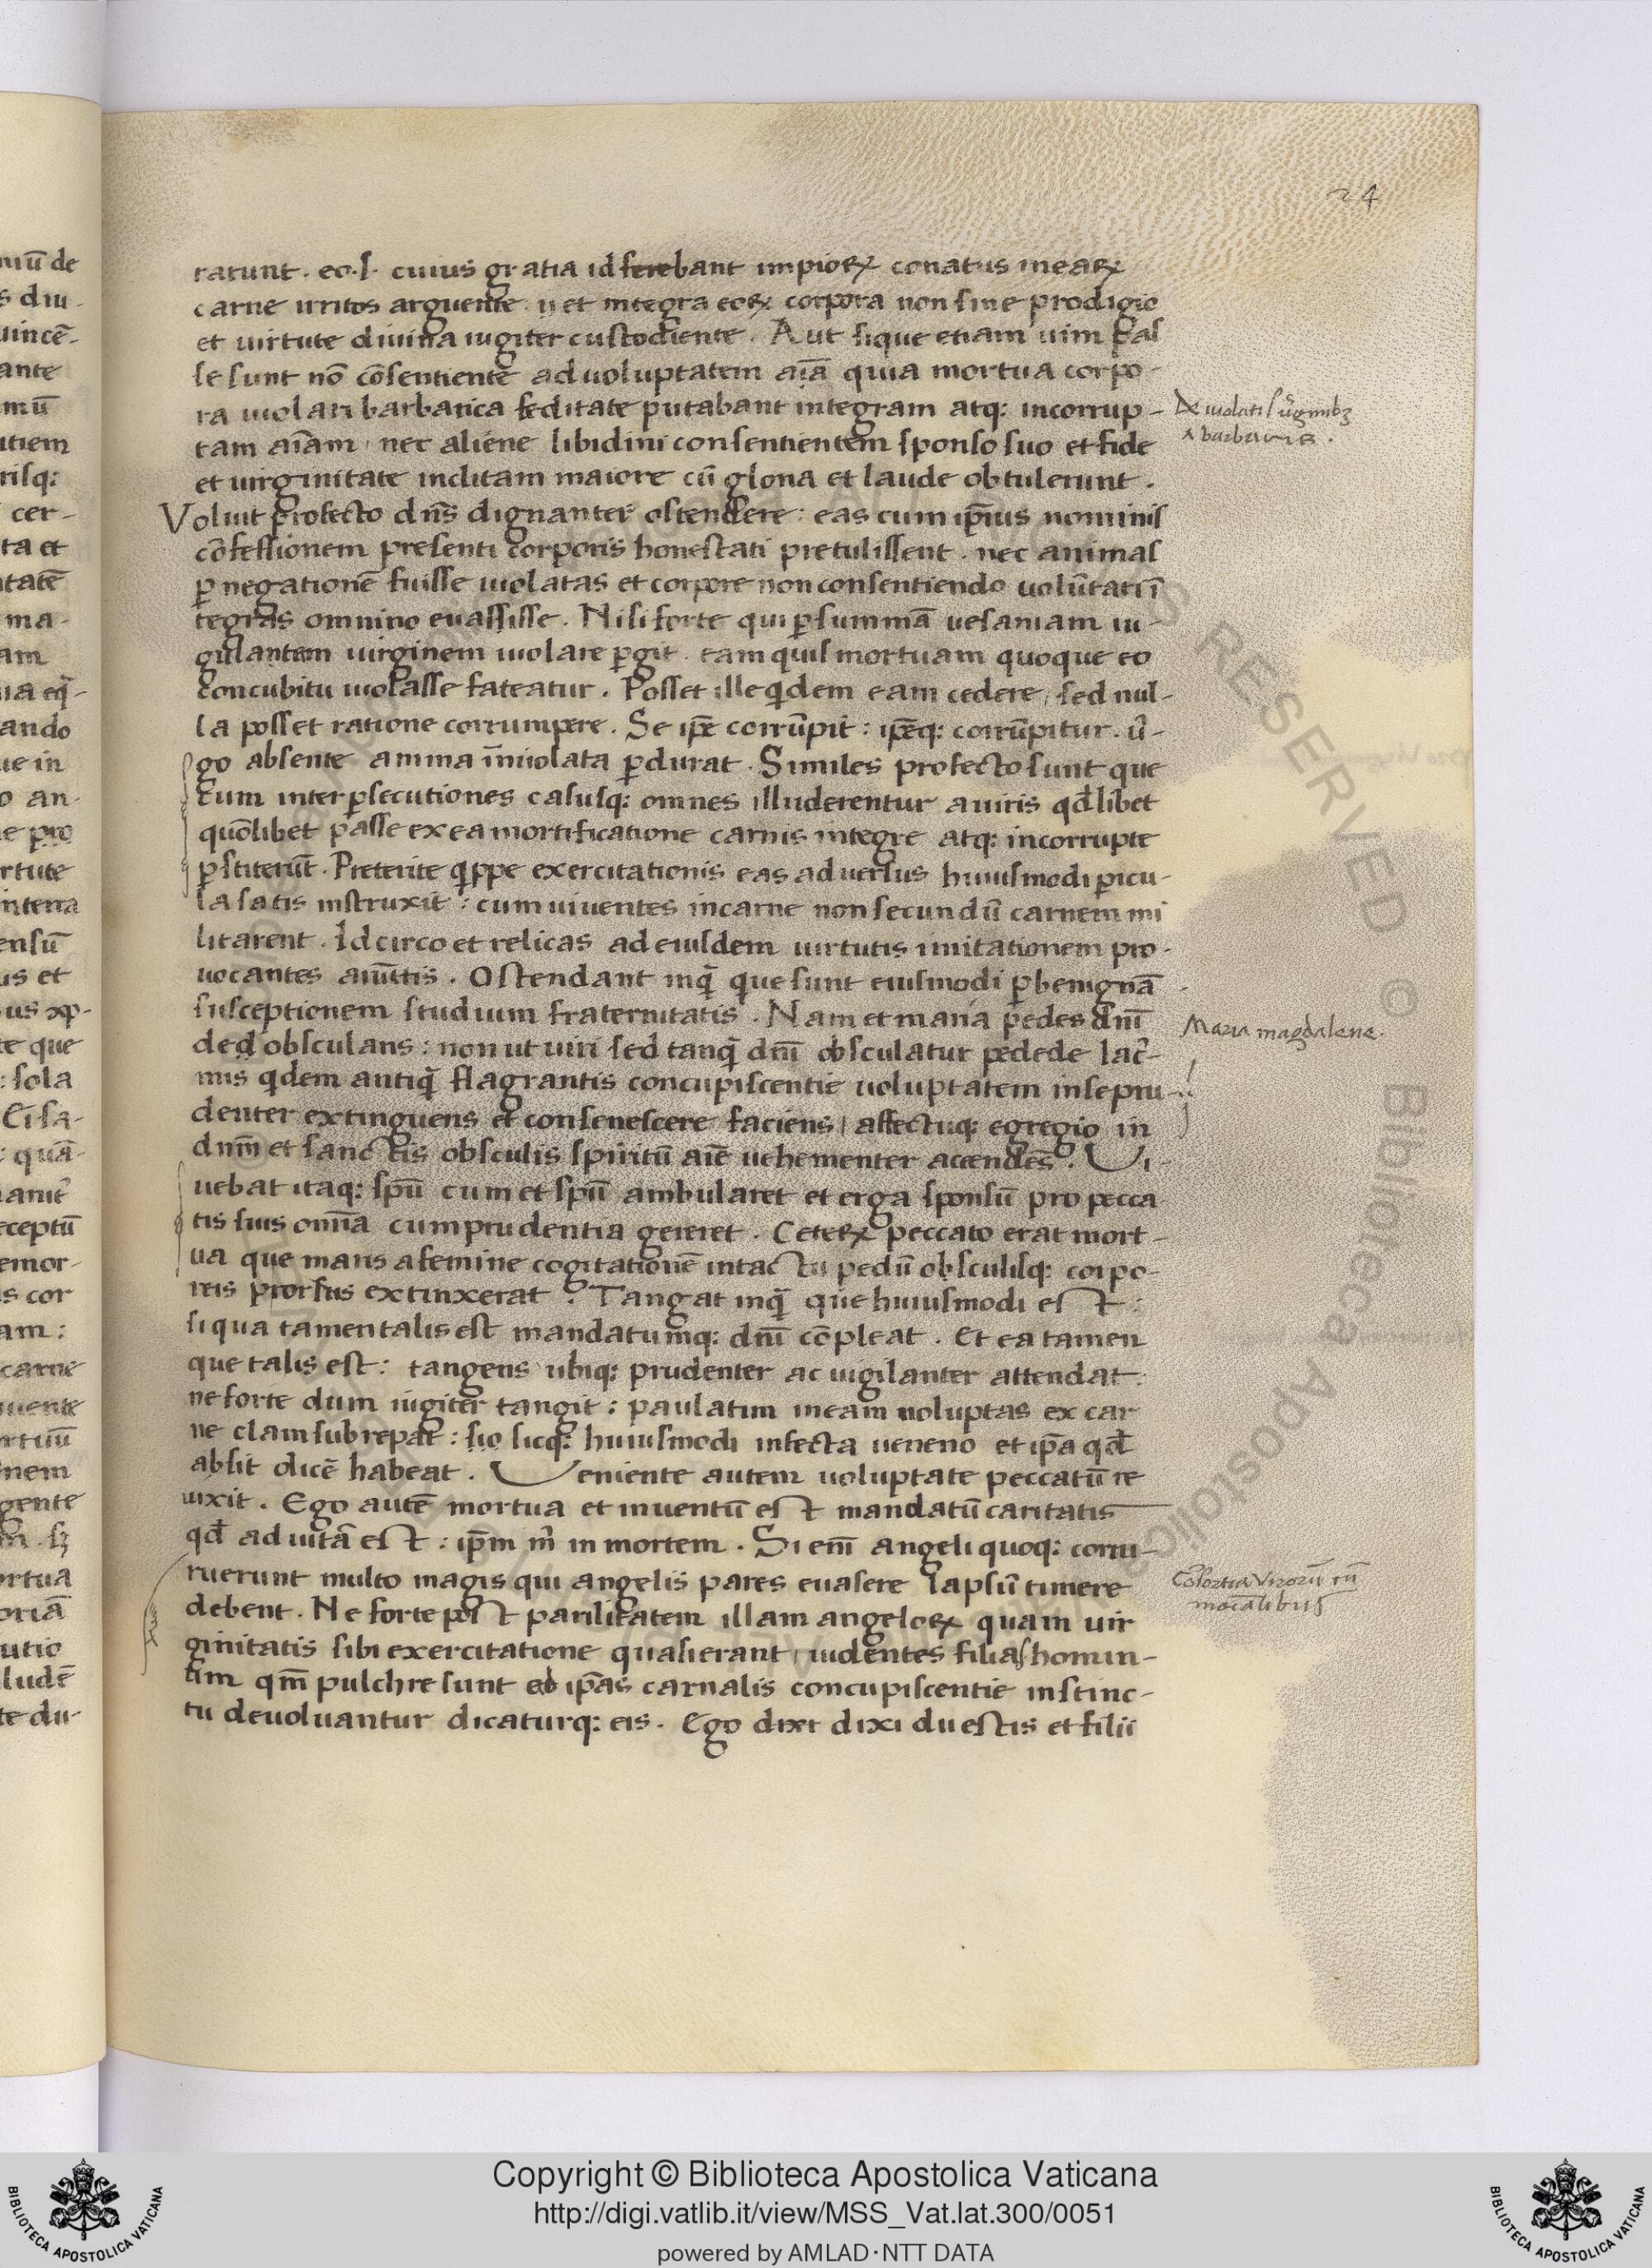 24
rarunt. eo.s. cuius gratia id ferebant impioꝝ conatus in eaꝝ
carne irritos arguente. et integra eoꝝ corpora non sine prodigio
et uirtute diuina iugiter custodiente. Aut sique etiam uim pas
se sunt nō cōsentiente ad uoluptatem aīa quia mortua corpo-
ra uiolari barbarica feditate putabant integram atq: incorrup-
tam aīam nec aliene libidini consentientem sponso suo et fide
et uirginitate inditam maiore cū gloria et laude obtulerunt.
De uiolatis
a barbaris.
Voluit profecto dn̄s dignanter ostendere: eas cum ip̄ius nominis
cōfessionem presenti corporis honestati pretulissent. nec animas
ꝑ negationē fuisse uiolatas et corpore non consentiendo uolūtati ī
tegras omnino euassisse. Nisi forte qui ꝑ summā uesaniam iu-
gulantem uirginem uiolare ꝑgit. eam quis mortuam quoque eo
concubitu uiolasse fateatur. Posset ille qdem eam cedere, sed nul-
la posset ratione corrumpere. Se ip̄e corrūpit: ip̄eq: corrūpitur. ū-
go absente anima īuiolata ꝑdurat. Similes profecto sunt que
cum inter ꝑsecutiones casusq: omnes illuderentur a uiris qd̄libet
quōlibet passe ex ea mortificatione carnis integre atq: incorrupte
ꝑstiterūt. Preterite qppe exercitationis eas aduersus huiusmodi ꝑicu-
la satis instruxit: cum uiuentes in carne non secundū carnem mi
litarent. Idcirco et relicas ad eiusdem uirtutis imitationem pro-
uocantes Ostendant inq̄ que sunt eiusmodi ꝑ benignā
susceptionem studium fraternitatis. Nam et maria pedes dnī
Maria magdalene.
ded obsculans: non ut uiri sed tanq̄ dnī obsculatur pedede lac̄-
mis qdem antiq̄ flagrantis concupiscentie uoluptatem in se pru-
denter extinguens et consenescere faciens, affectuq: egregio in
dnm̄ et sanctis obsculis spiritū aīe uehementer accendēs. Vi-
uebat itaq: sp̄ū cum et sp̄ū ambularet et erga sponsū pro pecca
tis suis omīa cum prudentia gereret. Ceteꝝ peccato erat mort-
ua que maris a femine cogitationē intactu pedū obsculisq: corpo-
reis prorsus extinxerat. Tangat inq̄ que huiusmodi est:
si qua tamen talis est mandatumq: dnī cōpleat. Et ea tamen
que talis est: tangens ubiq: prudenter ac uigilanter attendat:
ne forte dum iugiter tangit: paulatim in eam uoluptas ex car
ne clam subrepat: sio sicq: huiusmodi infecta ueneno et ip̄a qd̄
absit dicē habeat. Veniente autem uoluptate peccatū re
uixit. Ego autē mortua et inuentū est mandatū caritatis
qd̄ ad uitā est: ip̄m m̄ in mortem. Si enī angeli quoq: corru-
ruerunt multo magis qui angelis pares euasere lapsū timere
Cōsortia Virorū cū
mōialibus
debent. Ne forte post parilitatem illam angeloꝝ quam uir
ginitatis sibi exercitatione quasierant, uidentes filias homin-
um qm̄ pulchre sunt ad ip̄as carnalis concupiscentie instinc-
tu deuoluantur dicaturq: eis. Ego dixi dixi du estis et filii
Copyright © Biblioteca Apostolica Vaticana
http://digi.vatlib.it/view/MSS_Vat.lat.300/0051
powered by AMLAD·NTT DATA
BIBLIOTECA APOSTOLICA VATICANA
BIBLIOTECA APOSTOLICA VATICANA